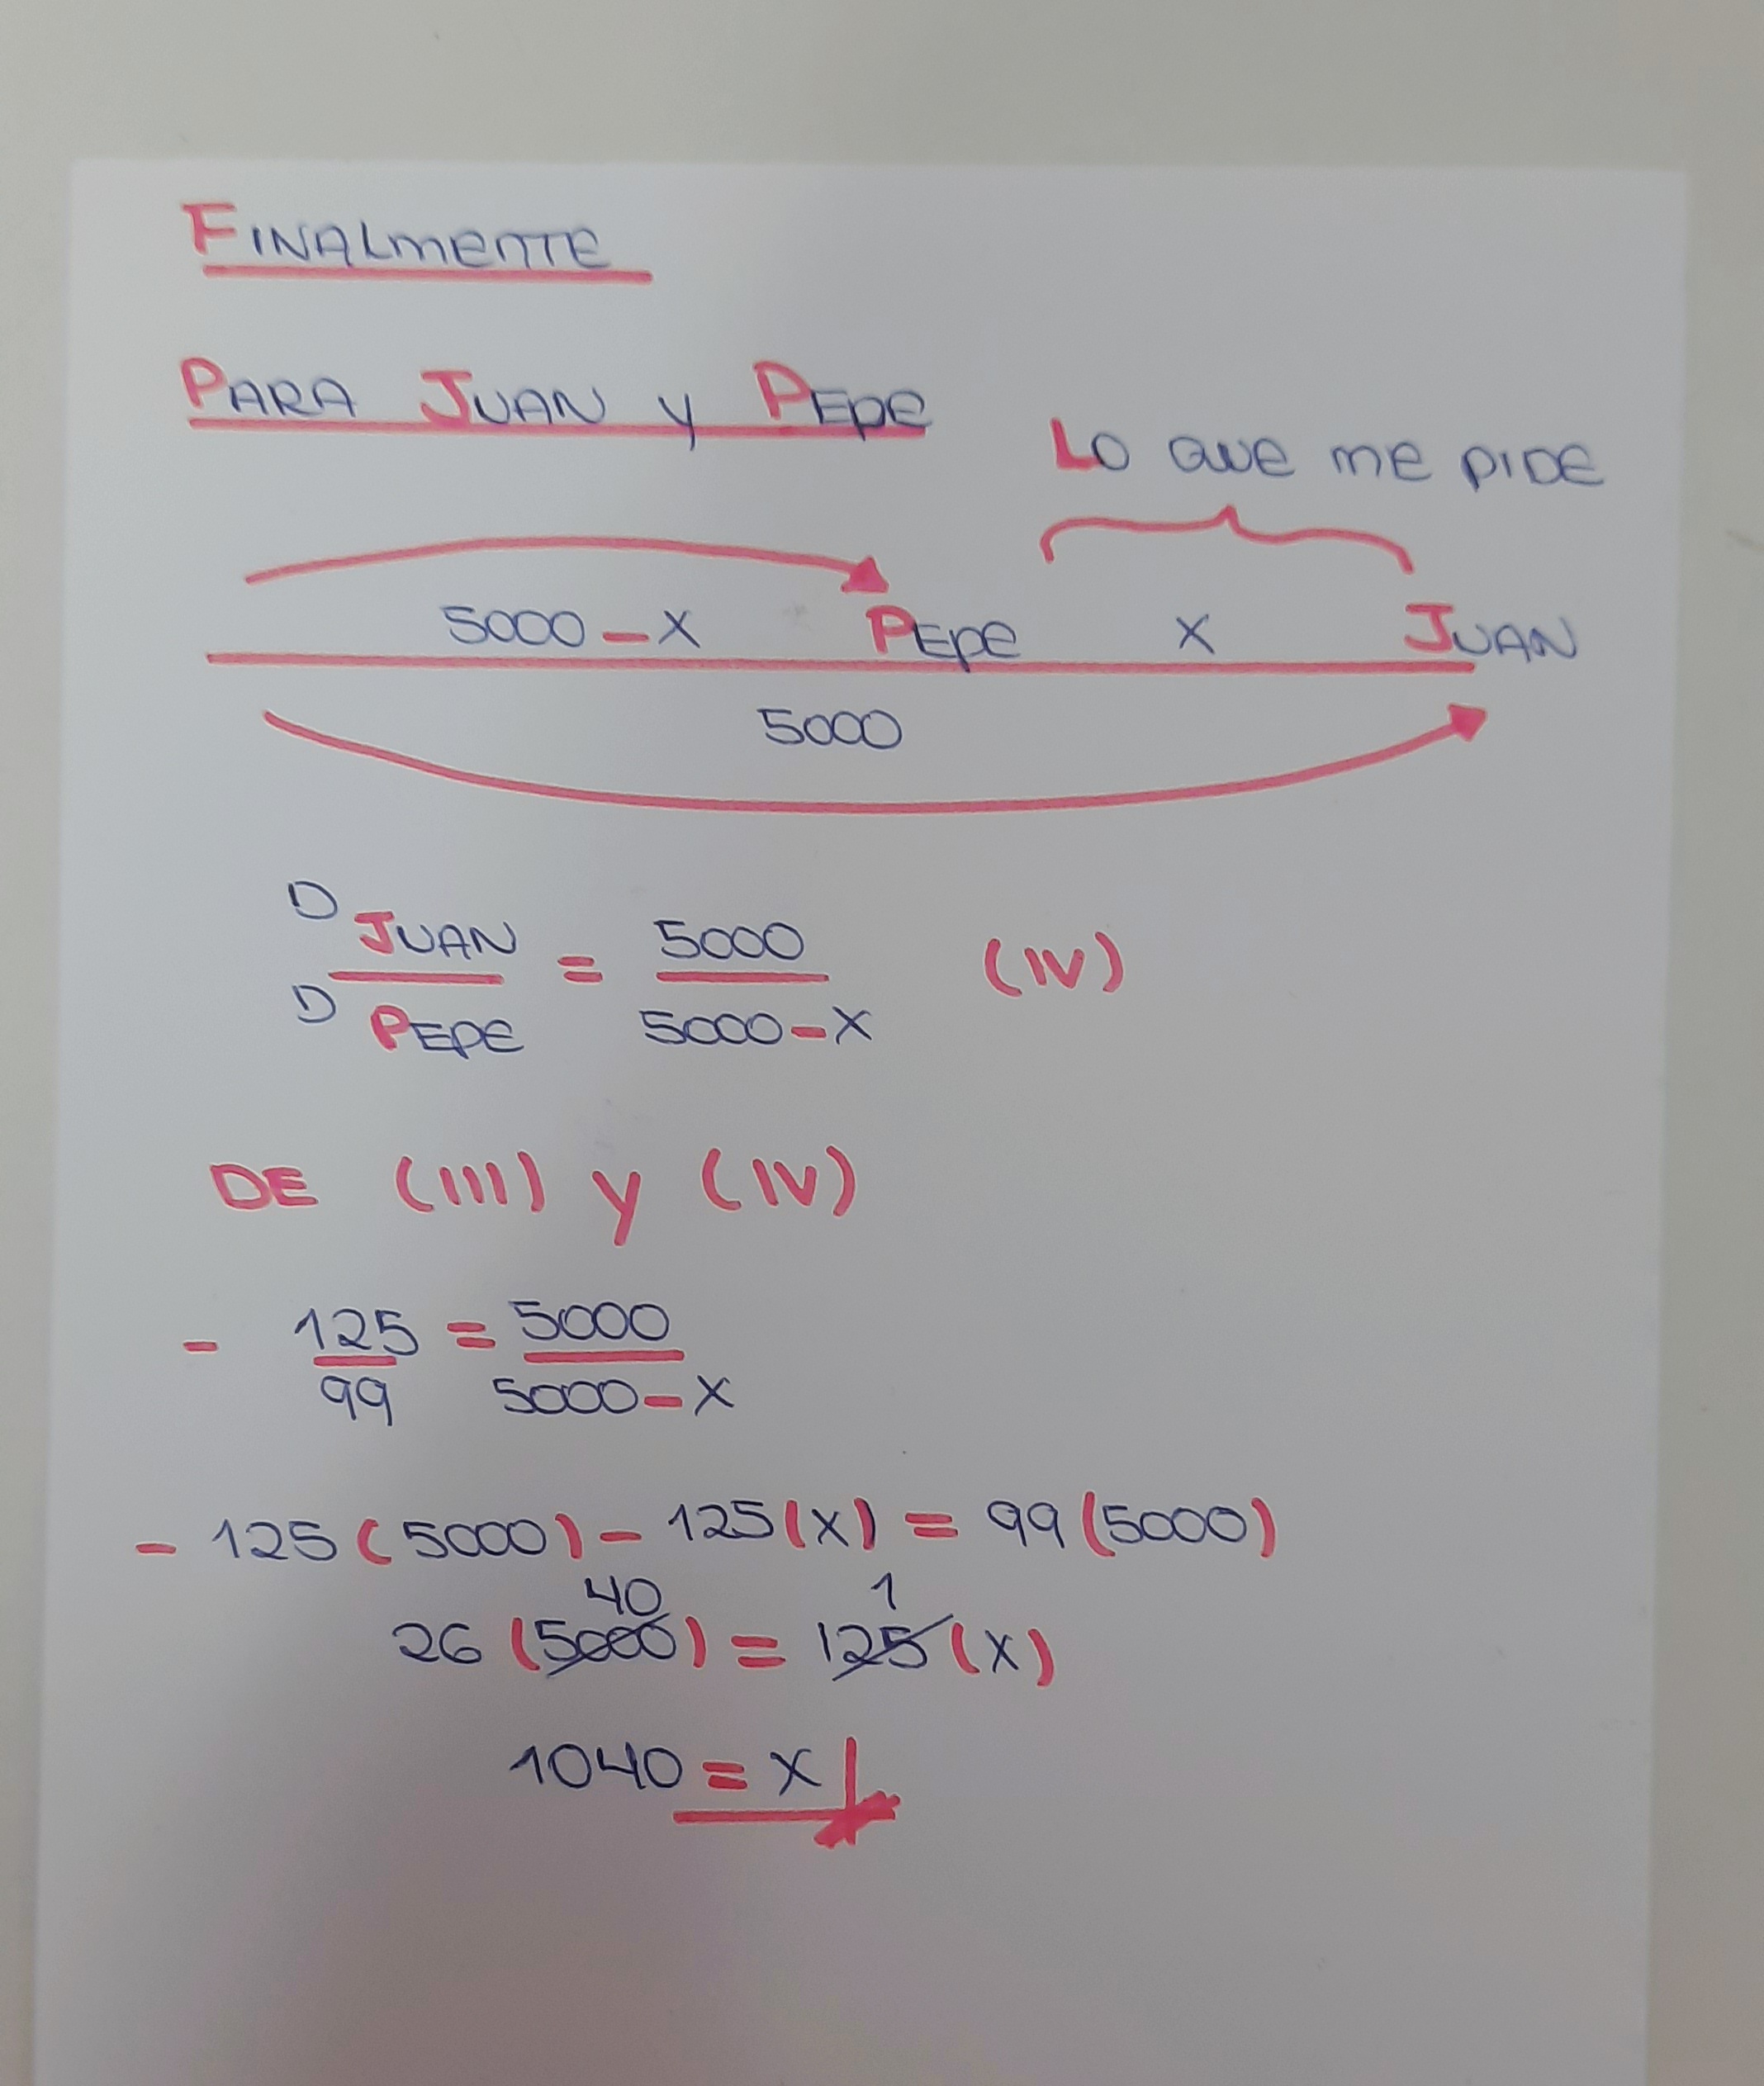 FINALmeNTe
PARA JUAN y PEpe
LO que me pIDe
5000-X PEpe X JUAN
5000
D JUAN = 5000 (IV)
D PEPE 5000-X
DE (III) y (IV)
- 125 = 5000
99 5000-X
- 125(5000)-125(X)=99(5000)
40 1
26(5000)=125(X)
1040=X